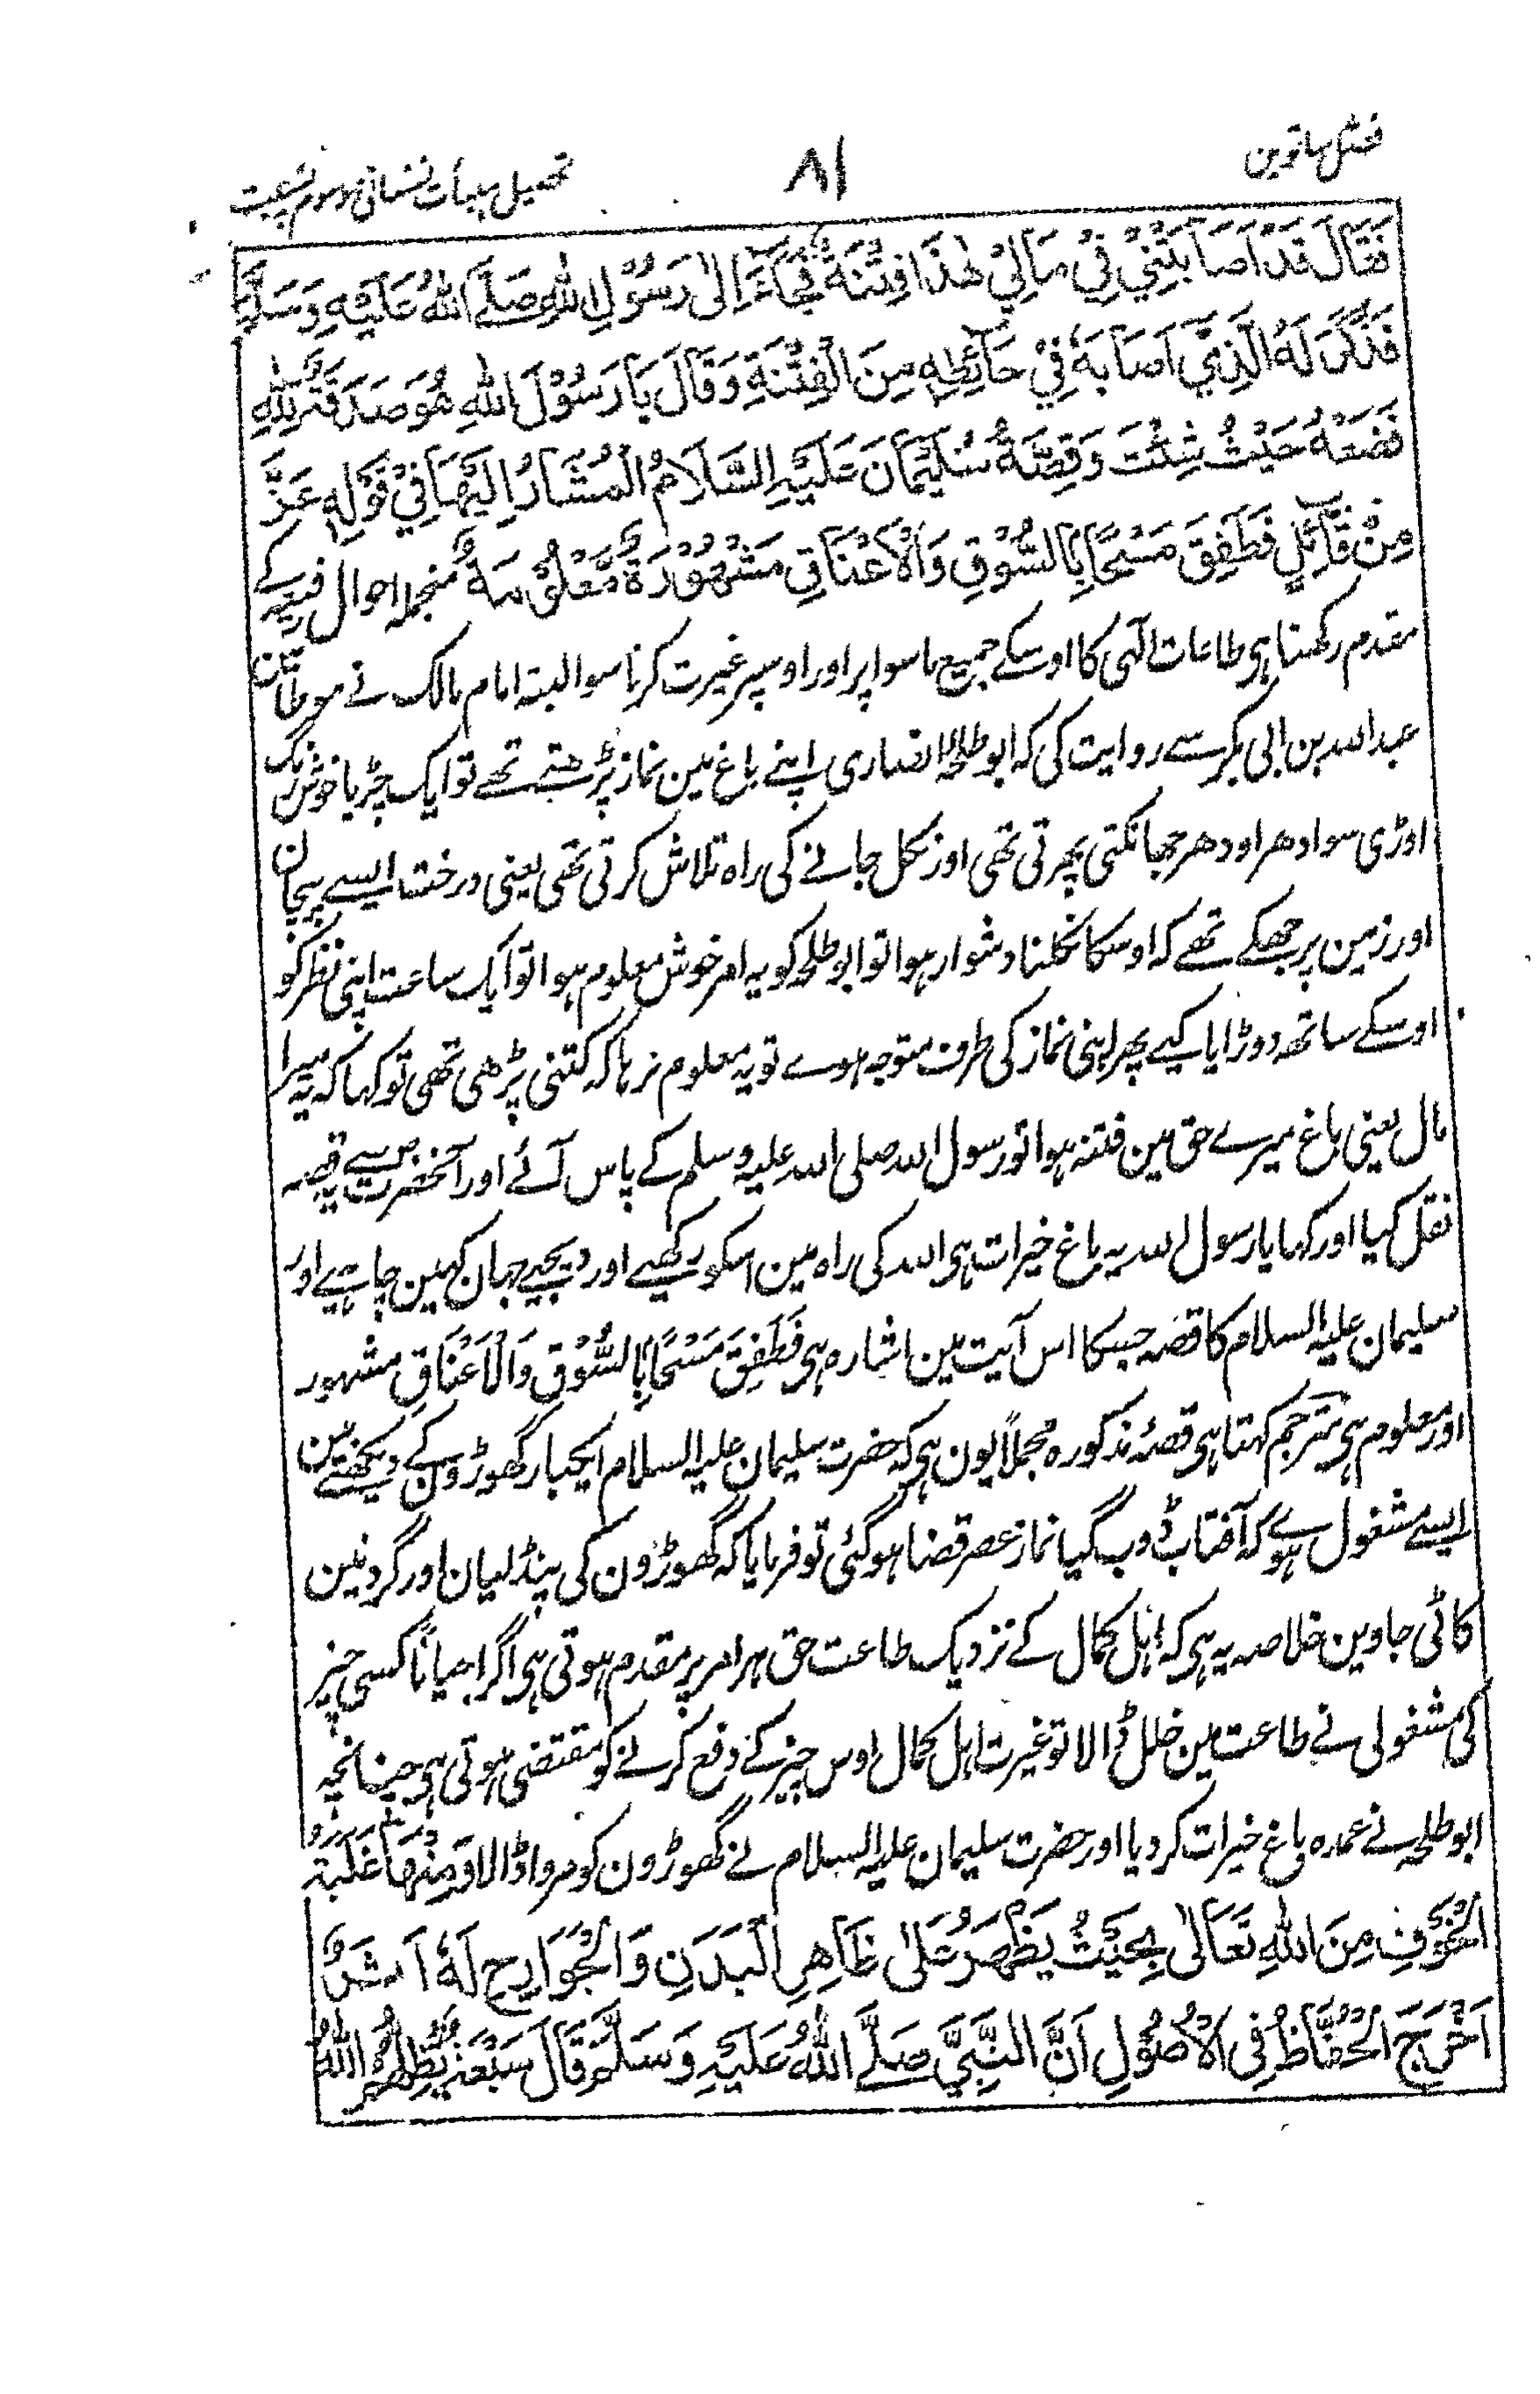 فصل ساتوین
۸۱
تحصیل ہیأت نفسانی موسوم بہ نسبت
فَقَالَ قَدْ اَصَابَتْنِيْ فِيْ مَالِيْ هٰذَا فِتْنَةٌ فَجَآءَ اِلٰى رَسُوْلِ اللهِ صَلَّے اللهُ عَلَيْهِ وَسَلَّمَ
فَذَكَرَ لَهُ الَّذِيْ اَصَابَهٗ فِيْ حَآئِطِهٖ مِنَ الْفِتْنَةِ وَقَالَ يَا رَسُوْلَ اللهِ هُوَ صَدَقَةٌ لِلّٰهِ
فَضَعْهُ حَيْثُ شِئْتَ وَقِصَّةُ سُلَيْمَانَ عَلَيْهِ السَّلَامُ الْمُشَارُ اِلَيْهَا فِيْ قَوْلِهٖ عَزَّ
مِنْ قَآئِلٍ فَطَفِقَ مَسْحًا بِالسُّوْقِ وَالْاَعْنَاقِ مَشْهُوْرَةٌ مَّعْلُوْمَةٌ منجملہ احوال رفیعہ کے
مقدم رکھنا ہی طاعات الٰہی کا اوسکے جمیع ماسوا پر اور اوسپر غیرت کرنا سو البتہ امام مالک نے موطا مین
عبداللہ بن ابی بکر سے روایت کی کہ ابو طلحہ انصاری اپنے باغ مین نماز پڑھتے تھے تو ایک چڑیا خوش رنگ
اوڑی سو ادھر اودھر جھانکتی پھرتی تھی اور نکل جانے کی راہ تلاش کرتی تھی یعنی درخت ایسے پیچان
اور زمین پر جھکے تھے کہ اوسکا نکلنا دشوار ہوا تو ابو طلحہ کو یہ امر خوش معلوم ہوا تو ایک ساعت اپنی نظر کو
اوسکے ساتھ دوڑایا کیے پھر اپنی نماز کی طرف متوجہ ہوے تو یہ معلوم نرہا کہ کتنی پڑھی تھی تو کہا کہ یہ میرا
مال یعنی باغ میرے حق مین فتنہ ہوا تو رسول اللہ صلی اللہ علیہ وسلم کے پاس آئے اور آنحضرتؐ سے یہ قصہ
نقل کیا اور کہا یا رسول اللہ یہ باغ خیرات ہی اللہ کی راہ مین اسکو رکھیے اور دیجیے جہان کہین چاہیے اور
سلیمان علیہ السلام کا قصہ جسکا اس آیت مین اشارہ ہی فَطَفِقَ مَسْحًا بِالسُّوْقِ وَالْاَعْنَاقِ مشہور
اور معلوم ہی مترجم کہتا ہی قصۂ مذکورہ مجملاً یون ہی کہ حضرت سلیمان علیہ السلام ایکبار گھوڑون کے دیکھنے مین
ایسے مشغول ہوے کہ آفتاب ڈوب گیا نماز عصر قضا ہوگئی تو فرمایا کہ گھوڑون کی پنڈلیان اور گردنین
کاٹی جاوین خلاصہ یہ ہی کہ اہل کمال کے نزدیک طاعت حق ہر امر پر مقدم ہوتی ہی اگر احیاناً کسی چیز
کی مشغولی نے طاعت مین خلل ڈالا تو غیرت اہل کمال اوس چیز کے دفع کرنے کو مقتضی ہوتی ہی چنانچہ
ابو طلحہ نے عمدہ باغ خیرات کر دیا اور حضرت سلیمان علیہ السلام نے گھوڑون کو مروا ڈالا وَمِنْهَا غَلَبَةُ
الْخَوْفِ مِنَ اللهِ تَعَالٰى بِحَيْثُ يَظْهَرُ عَلٰى ظَاهِرِ الْبَدَنِ وَالْجَوَارِحِ لَهٗ اَثَرٌ
اَخْرَجَ الْحُفَّاظُ فِى الْاُصُوْلِ اَنَّ النَّبِيَّ صَلَّے اللهُ عَلَيْهِ وَسَلَّمَ قَالَ سَبْعَةٌ يُّظِلُّهُمُ اللهُ